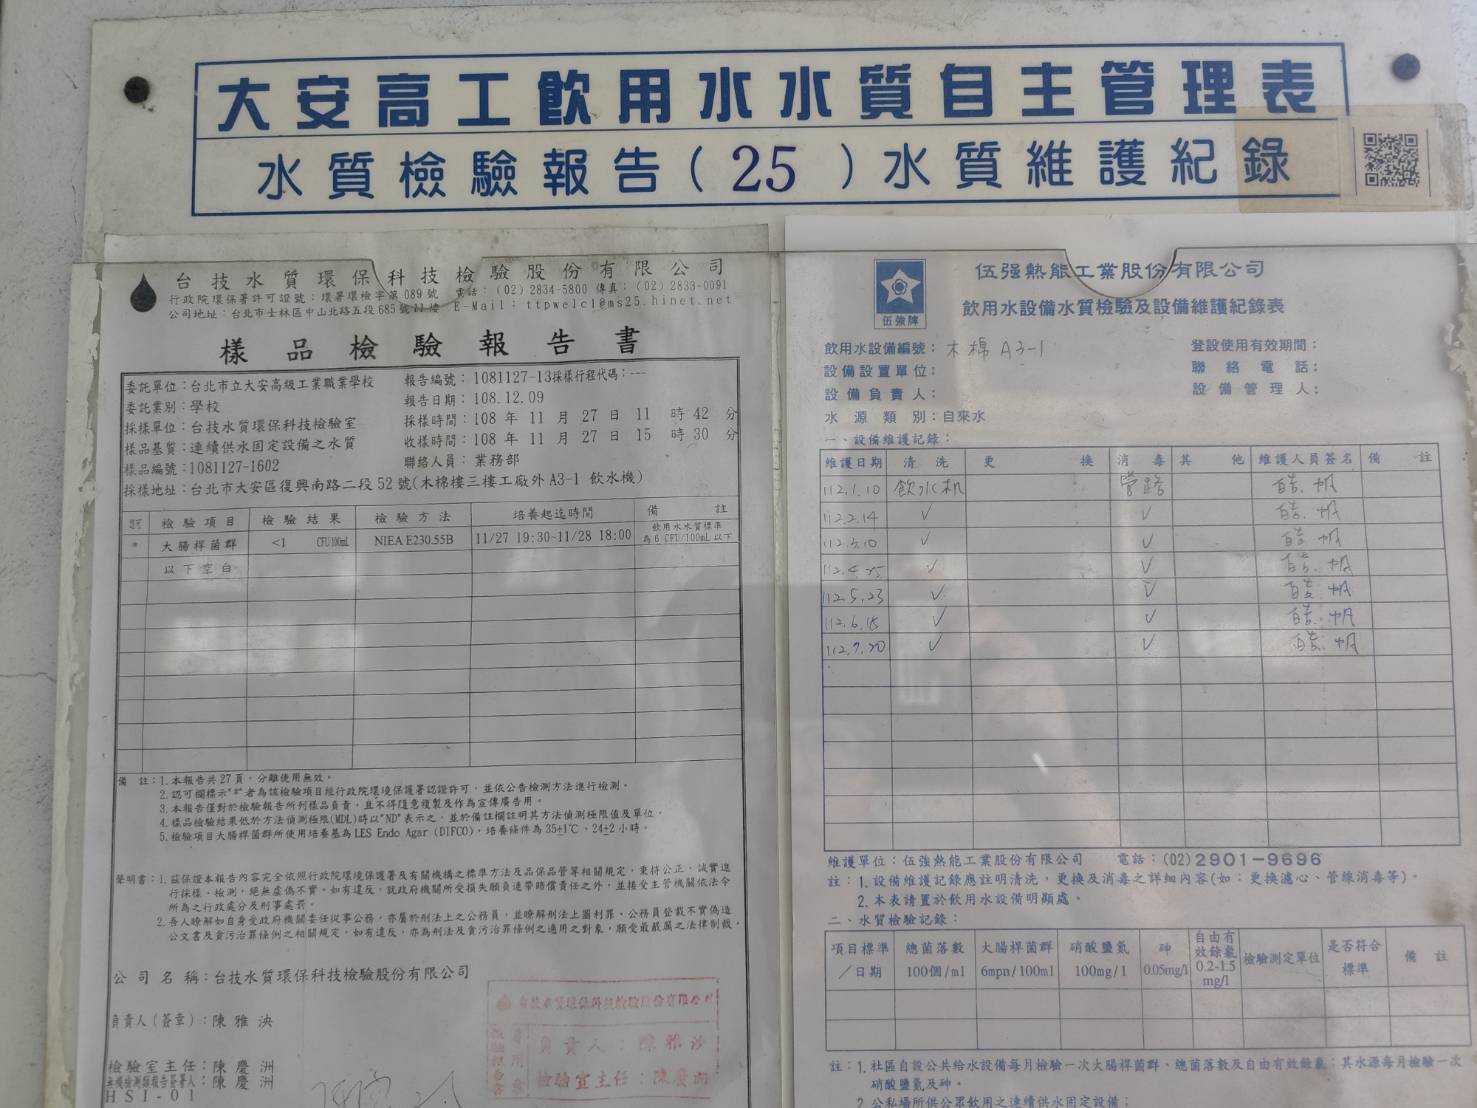 大安高工飲用水水質自主管理表
水質檢驗報告(25)水質維護紀錄
台技水質環保科技檢驗股份有限公司
行政院環保署許可證號：環署環檢字第089號 電話：(02) 2834-5800 傳真：(02) 2833-0091
公司地址：台北市士林區中山北路五段685號11樓 E-Mail：ttpwelcl@ms25.hinet.net
樣品檢驗報告書
委託單位：台北市立大安高級工業職業學校 報告編號：1081127-13採樣行程代碼：---
委託業別：學校 報告日期：108.12.09
採樣單位：台技水質環保科技檢驗室 採樣時間：108 年 11 月 27 日 11 時 42 分
樣品基質：連續供水固定設備之水質 收樣時間：108 年 11 月 27 日 15 時 30 分
樣品編號：1081127-1602 聯絡人員：業務部
採樣地址：台北市大安區復興南路二段52號(木棉樓三樓工廠外A3-1 飲水機)
檢驗項目 檢驗結果 檢驗方法 培養起迄時間 備註
* 大腸桿菌群 <1 CFU/100mL NIEA E230.55B 11/27 19:30~11/28 18:00 飲用水水質標準
為6 CFU/100mL以下
以下空白
備 註：1.本報告共27頁，分離使用無效。
2.認可欄標示"*"者為該檢驗項目經行政院環境保護署認證許可，並依公告檢測方法進行檢測。
3.本報告僅對於檢驗報告所列樣品負責，且不得隨意複製及作為宣傳廣告用。
4.樣品檢驗結果低於方法偵測極限(MDL)時以"ND"表示之，並於備註欄註明其方法偵測極限值及單位。
5.檢驗項目大腸桿菌群所使用培養基為LES Endo Agar (DIFCO)，培養條件為35±1℃、24±2小時。
聲明書：1.茲保證本報告內容完全依照行政院環境保護署及有關機構之標準方法及品保品管等相關規定，秉持公正、誠實進
行採樣、檢測，絕無虛偽不實。如有違反，就政府機關所受損失願負連帶賠償責任之外，並接受主管機關依法令
所為之行政處分及刑事處罰。
2.吾人瞭解如自身受政府機關委任從事公務，亦屬於刑法上之公務員，並瞭解刑法上圖利罪、公務員登載不實偽造
公文書及貪污治罪條例之相關規定，如有違反，亦為刑法及貪污治罪條例之適用之對象，願受最嚴厲之法律制裁。
公司名稱：台技水質環保科技檢驗股份有限公司
負責人(簽章)：陳雅泱
檢驗室主任：陳慶洲
無機檢測類報告簽署人：陳慶洲
HSI-01
台技水質環保科技檢驗股份有限公司
檢驗報告書 專用章
負責人：陳雅泱
檢驗室主任：陳慶洲
伍強牌
伍强熱能工業股份有限公司
飲用水設備水質檢驗及設備維護紀錄表
飲用水設備編號：木棉 A3-1 登設使用有效期間：
設備設置單位： 聯絡電話：
設備負責人： 設備管理人：
水源類別：自來水
一、設備維護記錄：
維護日期 清洗 更換 消毒 其他 維護人員簽名 備註
112.1.10 飲水机 管路
112.2.14 ✓ ✓
112.3.10 ✓ ✓
112.4.25 ✓ ✓
112.5.23 ✓ ✓
112.6.15 ✓ ✓
112.7.20 ✓ ✓
維護單位：伍強熱能工業股份有限公司 電話：(02)2901-9696
註：1.設備維護記錄應註明清洗，更換及消毒之詳細內容(如：更換濾心、管線消毒等)。
2.本表請置於飲用水設備明顯處。
二、水質檢驗記錄：
項目標準／日期 總菌落數 100個/ml 大腸桿菌群 6mpn/100ml 硝酸鹽氮 100mg/l 砷 0.05mg/l 自由有效餘氯 0.2-1.5 mg/l 檢驗測定單位 是否符合標準 備註
註：1.社區自設公共給水設備每月檢驗一次大腸桿菌群、總菌落數及自由有效餘氯；其水源每月檢驗一次
硝酸鹽氮及砷。
2.公私場所供公眾飲用之連續供水固定設備：